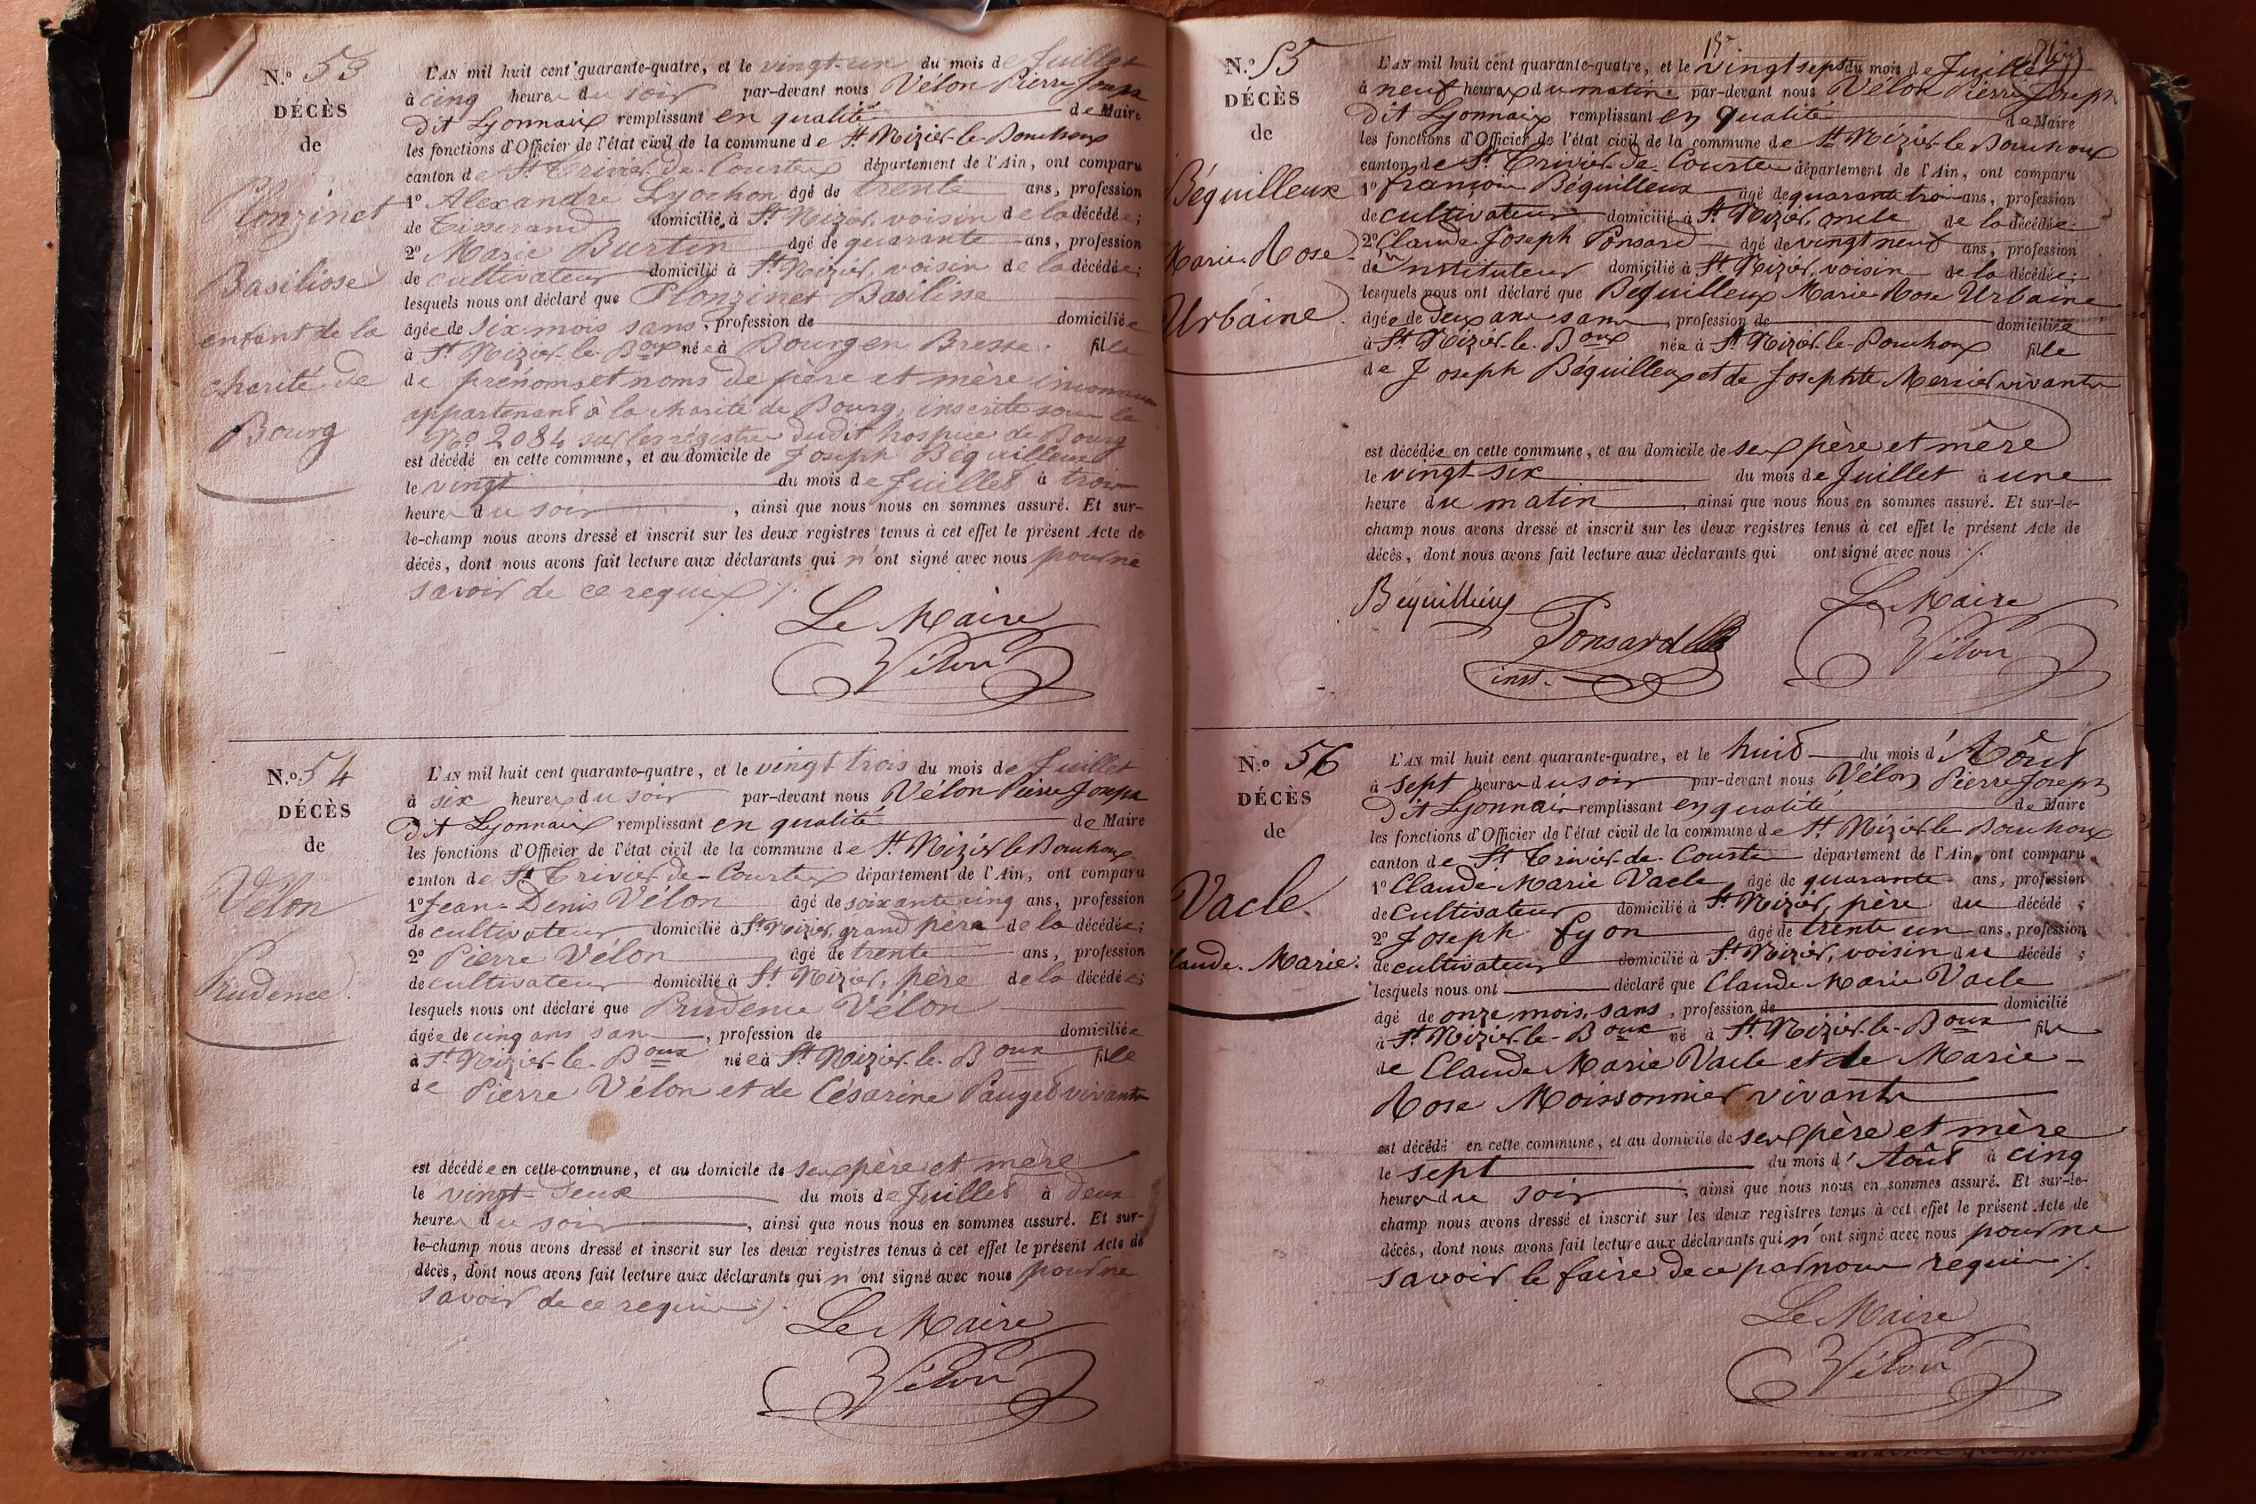 N.º 53
DÉCÈS
de
Plonzinet
Basilisse
enfant de la
charité de
Bourg
L'AN mil huit cent quarante-quatre, et le vingt-un du mois de Juillet
à cinq heures du soir par-devant nous Vélon Pierre Joseph
dit Lyonnais remplissant en qualité de Maire
les fonctions d'Officier de l'état civil de la commune de St Nizier-le-Bouchoux
canton de St Trivier-de-Courtes département de l'Ain, ont comparu
1º Alexandre Lyochon âgé de trente ans, profession
de Tisserand domicilié à St Nizier, voisin de la décédée;
2º Marie Burtin âgé de quarante ans, profession
de cultivateur domicilié à St Nizier, voisin de la décédée;
lesquels nous ont déclaré que Plonzinet Basilisse
âgée de six mois sans, profession de domiciliée
à St Nizier-le-Boux née à Bourg en Bresse. fille
de prénoms et noms de père et mère inconnus
appartenant à la charité de Bourg, inscrite sous le
No 2084 sur les régistres dudit hospice de Bourg
est décédé en cette commune, et au domicile de Joseph Béquilleux
le vingt du mois de Juillet à trois
heures du soir, ainsi que nous nous en sommes assuré. Et sur-
le-champ nous avons dressé et inscrit sur les deux registres tenus à cet effet le présent Acte de
décès, dont nous avons fait lecture aux déclarants qui n'ont signé avec nous pour ne
savoir de ce requis ./.
Le Maire
Vélon
N.º 54
DÉCÈS
de
Vélon
Prudence.
L'AN mil huit cent quarante-quatre, et le vingt trois du mois de Juillet
à six heures du soir par-devant nous Vélon Pierre Joseph
dit Lyonnais remplissant en qualité de Maire
les fonctions d'Officier de l'état civil de la commune de St Nizier le Bouchoux
canton de St Trivier-de-Courtes département de l'Ain, ont comparu
1º Jean-Denis Vélon âgé de soixante cinq ans, profession
de cultivateur domicilié à St Nizier, grand père de la décédée;
2º Pierre Vélon âgé de trente ans, profession
de cultivateur domicilié à St Nizier, père de la décédée;
lesquels nous ont déclaré que Prudence Vélon
âgée de cinq ans sans, profession de domiciliée
à St Nizier-le-Boux née à St Nizier-le-Boux fille
de Pierre Vélon et de Césarine Pauget vivants
est décédée en cette commune, et au domicile de ses père et mère
le vingt-deux du mois de Juillet à deux
heures du soir, ainsi que nous nous en sommes assuré. Et sur-
le-champ nous avons dressé et inscrit sur les deux registres tenus à cet effet le présent Acte de
décès, dont nous avons fait lecture aux déclarants qui n'ont signé avec nous pour ne
savoir de ce requis ./.
Le Maire
Vélon
N.º 55
DÉCÈS
de
Béquilleux
Marie-Rose
Urbaine
L'AN mil huit cent quarante-quatre, et le vingt sept du mois de Juillet
à neuf heures du matin par-devant nous Vélon Pierre Joseph
dit Lyonnais remplissant en qualité de Maire
les fonctions d'Officier de l'état civil de la commune de St Nizier-le Bouchoux
canton de St Trivier-de-Courtes département de l'Ain, ont comparu
1º françois Béquilleux âgé de quarante trois ans, profession
de cultivateur domicilié à St Nizier, oncle de la décédée;
2º Claude-Joseph Ponsard âgé de vingt neuf ans, profession
d'instituteur domicilié à St Nizier, voisin de la décédée;
lesquels nous ont déclaré que Béquilleux Marie Rose Urbaine
âgée de deux ans sans, profession de domiciliée
à St Nizier-le-Boux née à St Nizier-le-Bouchoux fille
de Joseph Béquilleux et de Josephte Mercier vivants
est décédée en cette commune, et au domicile de ses père et mère
le vingt-six du mois de Juillet à une
heure du matin, ainsi que nous nous en sommes assuré. Et sur-le-
champ nous avons dressé et inscrit sur les deux registres tenus à cet effet le présent Acte de
décès, dont nous avons fait lecture aux déclarants qui ont signé avec nous ./.
Béquilleux
Ponsard
inst.
Le Maire
Vélon
N.º 56
DÉCÈS
de
Vacle.
Claude-Marie.
L'AN mil huit cent quarante-quatre, et le huit du mois d'Août
à sept heures du soir par-devant nous Vélon Pierre Joseph
dit Lyonnais remplissant en qualité de Maire
les fonctions d'Officier de l'état civil de la commune de St Nizier le Bouchoux
canton de St Trivier-de-Courtes département de l'Ain, ont comparu
1º Claude-Marie Vacle âgé de quarante ans, profession
de cultivateur domicilié à St Nizier, père du décédé;
2º Joseph Fyon âgé de trente un ans, profession
de cultivateur domicilié à St Nizier, voisin du décédé;
lesquels nous ont déclaré que Claude Marie Vacle
âgé de onze mois, sans, profession de domicilié
à St Nizier-le-Boux né à St Nizier-le-Boux fils
de Claude Marie Vacle et de Marie-
Rose Moissonnier vivants
est décédé en cette commune, et au domicile de ses père et mère
le sept du mois d'Août à cinq
heures du soir, ainsi que nous nous en sommes assuré. Et sur-le-
champ nous avons dressé et inscrit sur les deux registres tenus à cet effet le présent Acte de
décès, dont nous avons fait lecture aux déclarants qui n'ont signé avec nous pour ne
savoir le faire de ce par nous requis ./.
Le Maire
Vélon